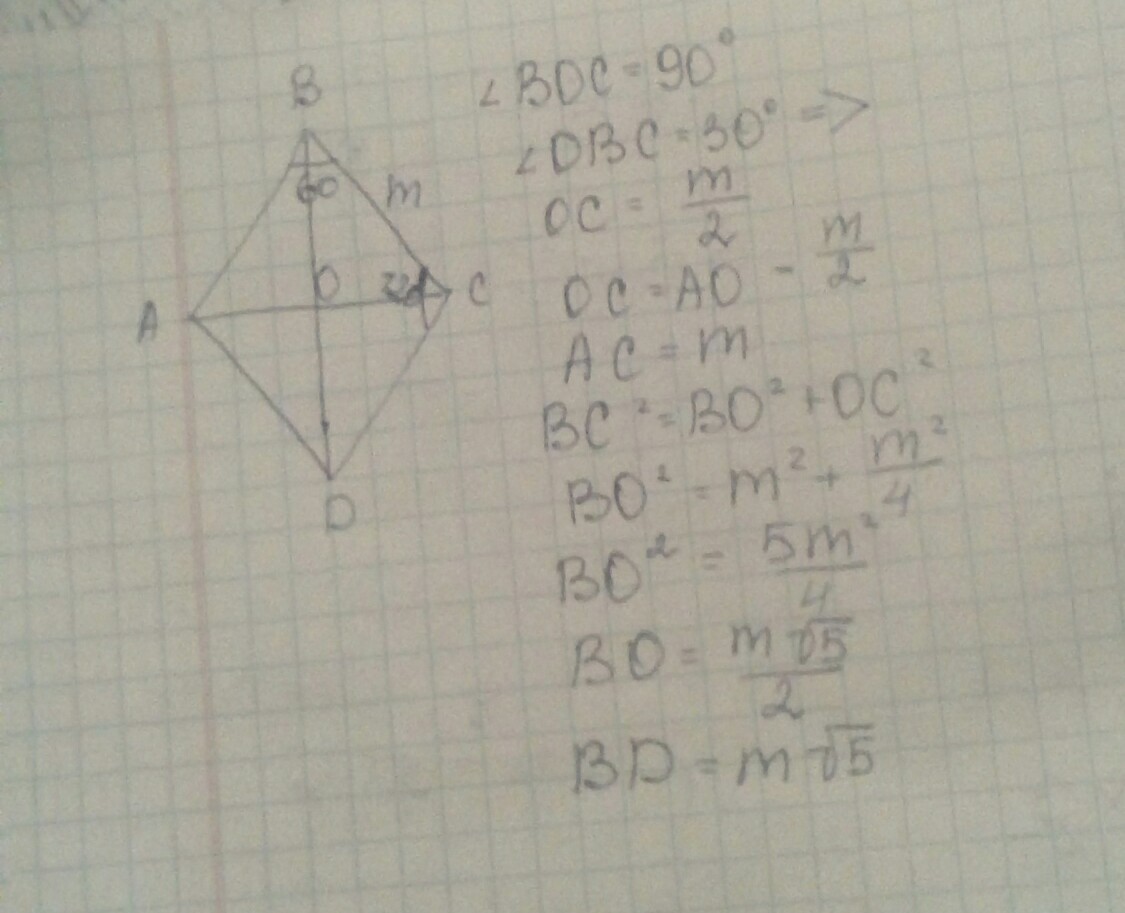 B
60
m
A
O
C
D
∠BOC = 90°
∠OBC = 30° =>
OC = m/2
OC = AO - m/2
AC = m
BC² = BO² + OC²
BO² = m² + m²/4
BO² = 5m²/4
BO = m√5/2
BD = m√5